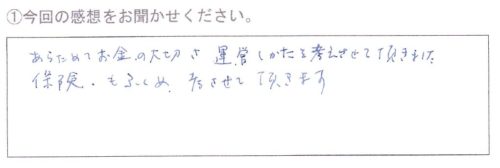 ①今回の感想をお聞かせください。
あらためてお金の大切さ 運営しかたを考えさせて頂きました
保険.もふくめ 考させて頂きます